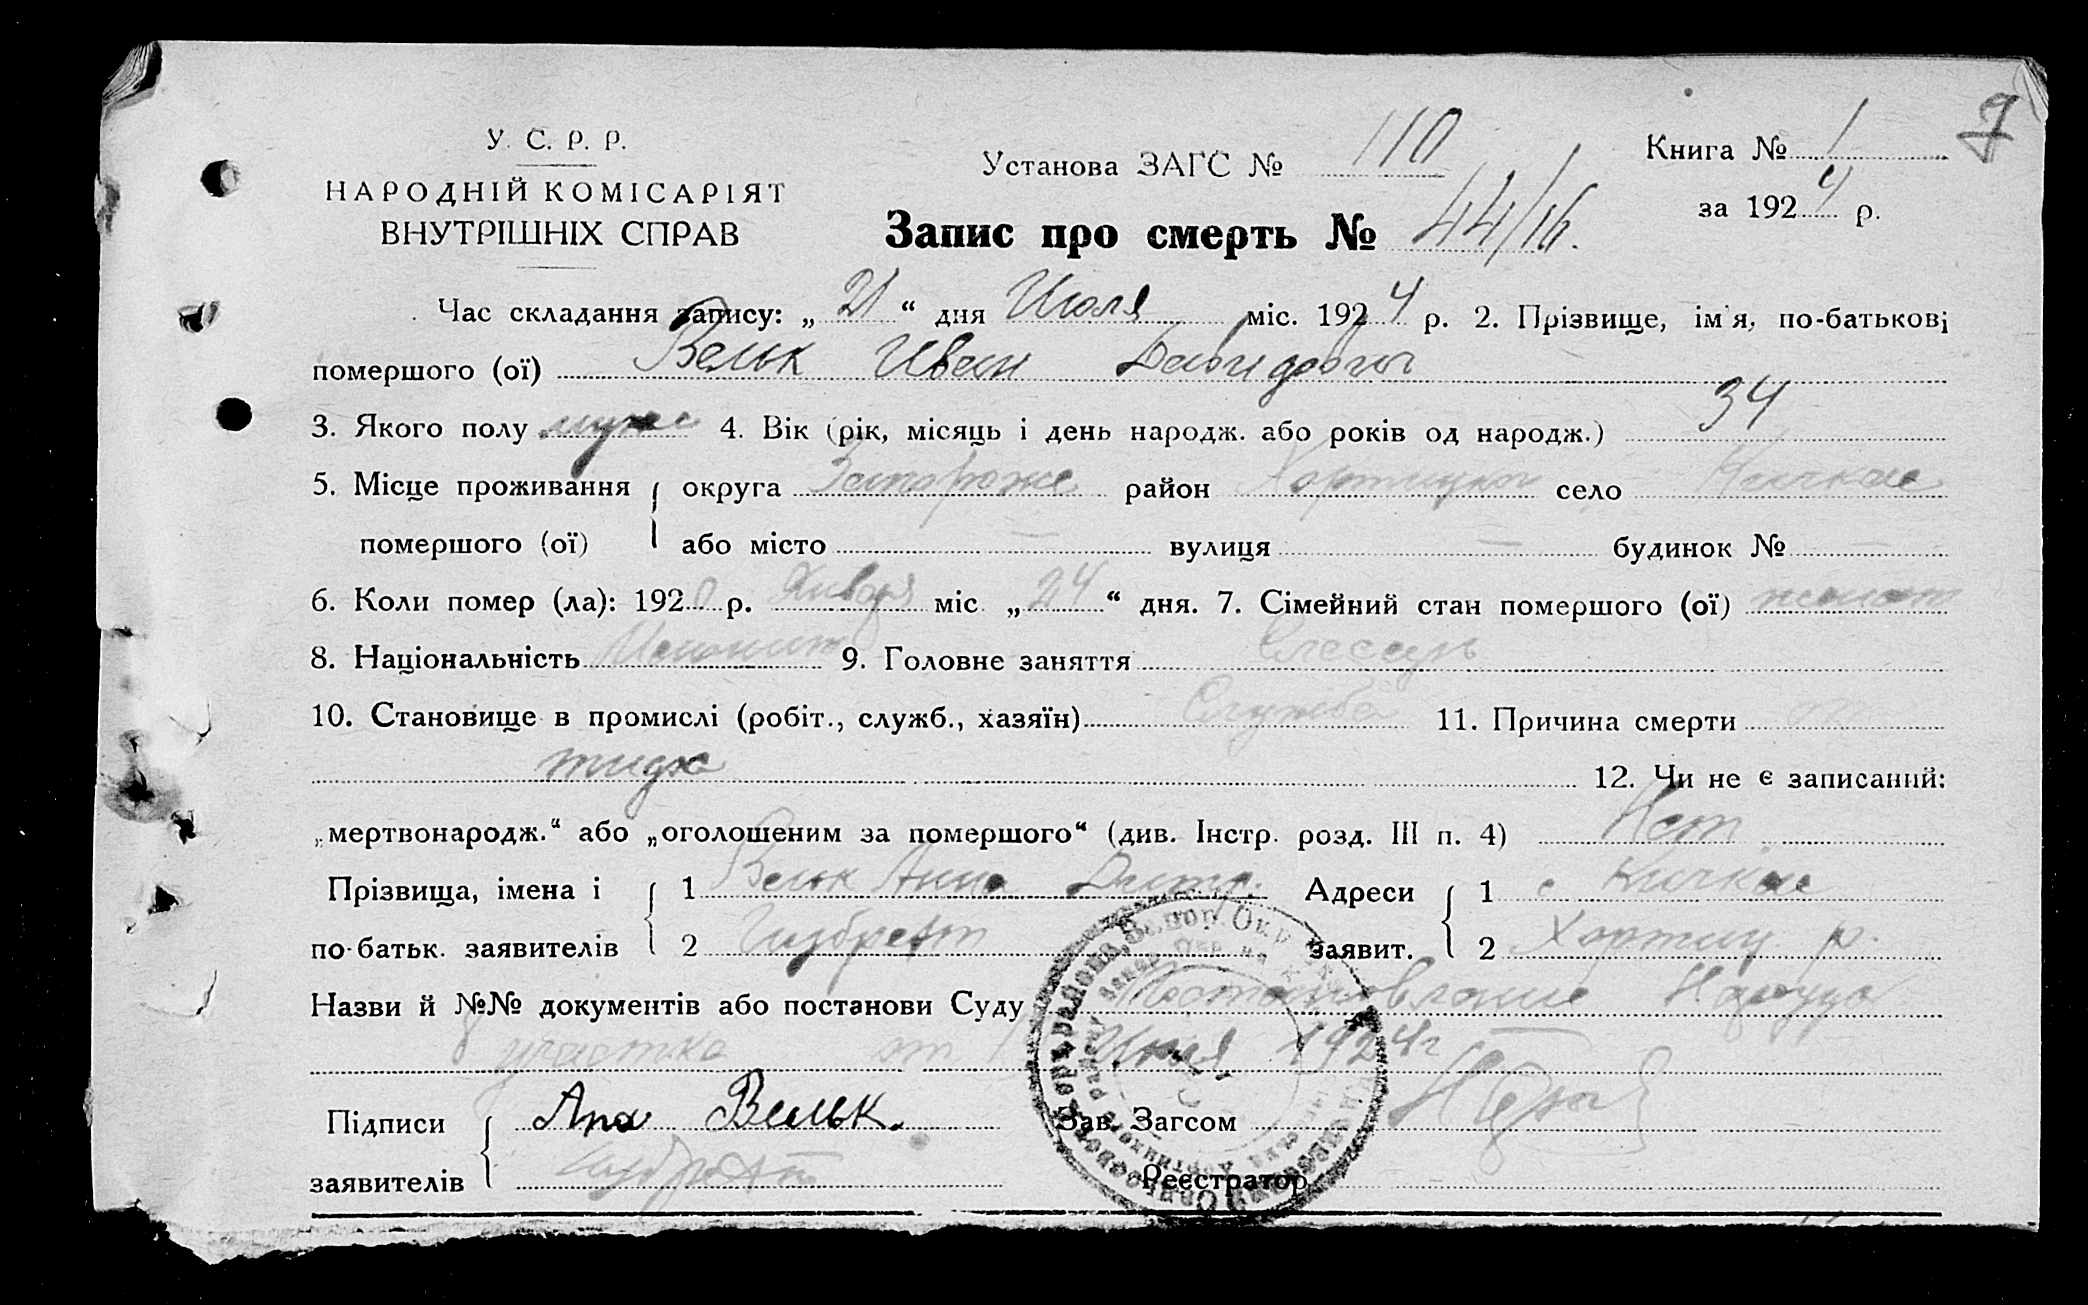 У. С. Р. Р.
НАРОДНІЙ КОМІСАРІЯТ
ВНУТРІШНІХ СПРАВ
Установа ЗАГС № 110
Запис про смерть № 44/16.
Книга № 1
за 1924 р.
Час складання запису: „21“ дня Июля міс. 1924 р. 2. Прізвище, ім'я, по-батькові
помершого (ої) Вельк Иван Давидович
3. Якого полу мужс 4. Вік (рік, місяць і день народж. або років од народж.) 34
5. Місце проживання округа Запорожье район Хортицкий село Кичкас
помершого (ої) або місто — вулиця — будинок № —
6. Коли помер (ла): 1920 р. Января міс. „24“ дня. 7. Сімейний стан помершого (ої) женат
8. Національність Менонит 9. Головне заняття Слесарь
10. Становище в промислі (робіт., служб., хазяїн) Служба 11. Причина смерти от
тифа 12. Чи не є записаний:
„мертвонародж.“ або „оголошеним за помершого“ (див. Інстр. розд. III п. 4) Нет
Прізвища, імена і 1 Вельк Анна Адреси 1 с Кичкас
по-батьк. заявителів 2 Гизбрехт заявит. 2 Хортиц р.
Назви й №№ документів або постанови Суду Постановление Нарсуда
8 участка от 1924 г
Підписи Ана Вельк. Зав. Загсом
заявителів Гизбрехт Реєстратор